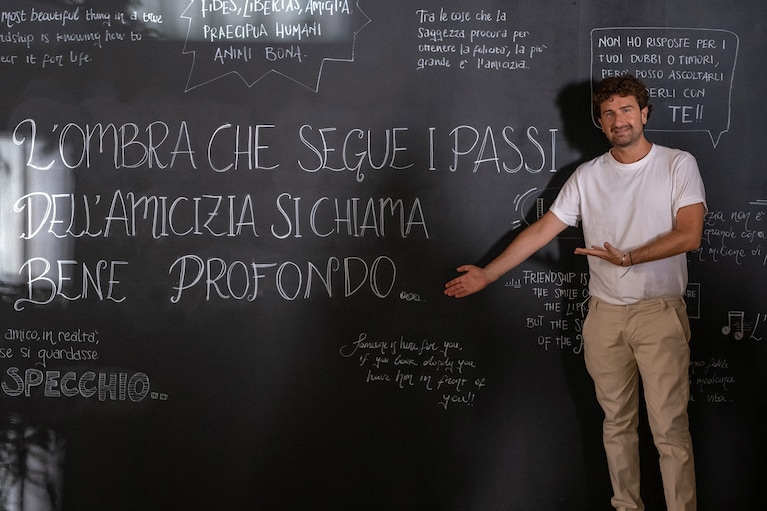 most beautiful thing in a true
friendship is knowing how to
it for life.
FIDES, LIBERTAS, AMICITIA,
PRAECIPUA HUMANI
ANIMI BONA.
Tra le cose che la
saggezza procura per
ottenere la felicità, la più
grande è l'amicizia..
NON HO RISPOSTE PER I
TUOI DUBBI O TIMORI,
PERÒ POSSO ASCOLTARLI
CON
TE!!
L'OMBRA CHE SEGUE I PASSI
DELL'AMICIZIA SI CHIAMA
BENE PROFONDO..
FRIENDSHIP IS
THE SMILE O
THE LIP
BUT THE S
OF THE
NON È
grande
un milione di
amico, in realtà,
se si guardasse
SPECCHIO..
Someone is here for you,
if you look closely you
have him in front of
you!!
L'
medicina
vita...